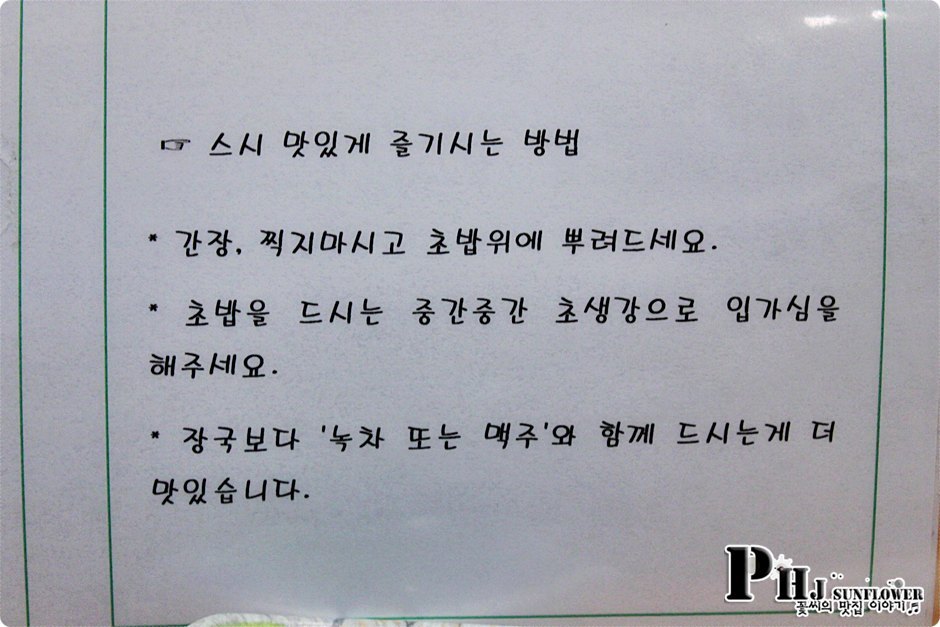 ☞ 스시 맛있게 즐기시는 방법
* 간장, 찍지마시고 초밥위에 뿌려드세요.
* 초밥을 드시는 중간중간 초생강으로 입가심을
해주세요.
* 장국보다 '녹차 또는 맥주'와 함께 드시는게 더
맛있습니다.
PHJ SUNFLOWER
꽃씨의 맛집 이야기♬